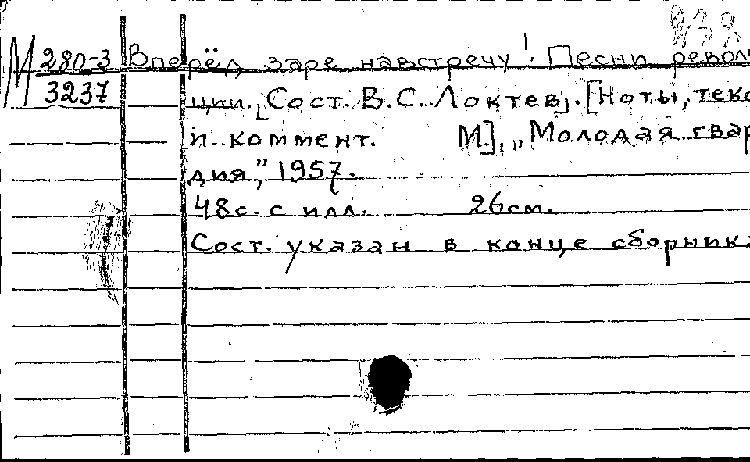 М 280-3 Вперёд заре навстречу! Песни револю
3237 ции. [Сост. В.С. Локтев]. [Ноты, текс
и коммент. М]., „Молодая гвар
дия," 1957.
48с. с илл. 26см.
Сост. указан в конце сборника